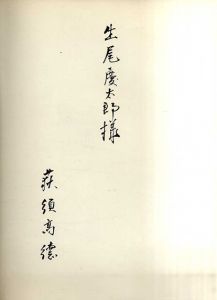 生尾慶太郎様
荻須高徳